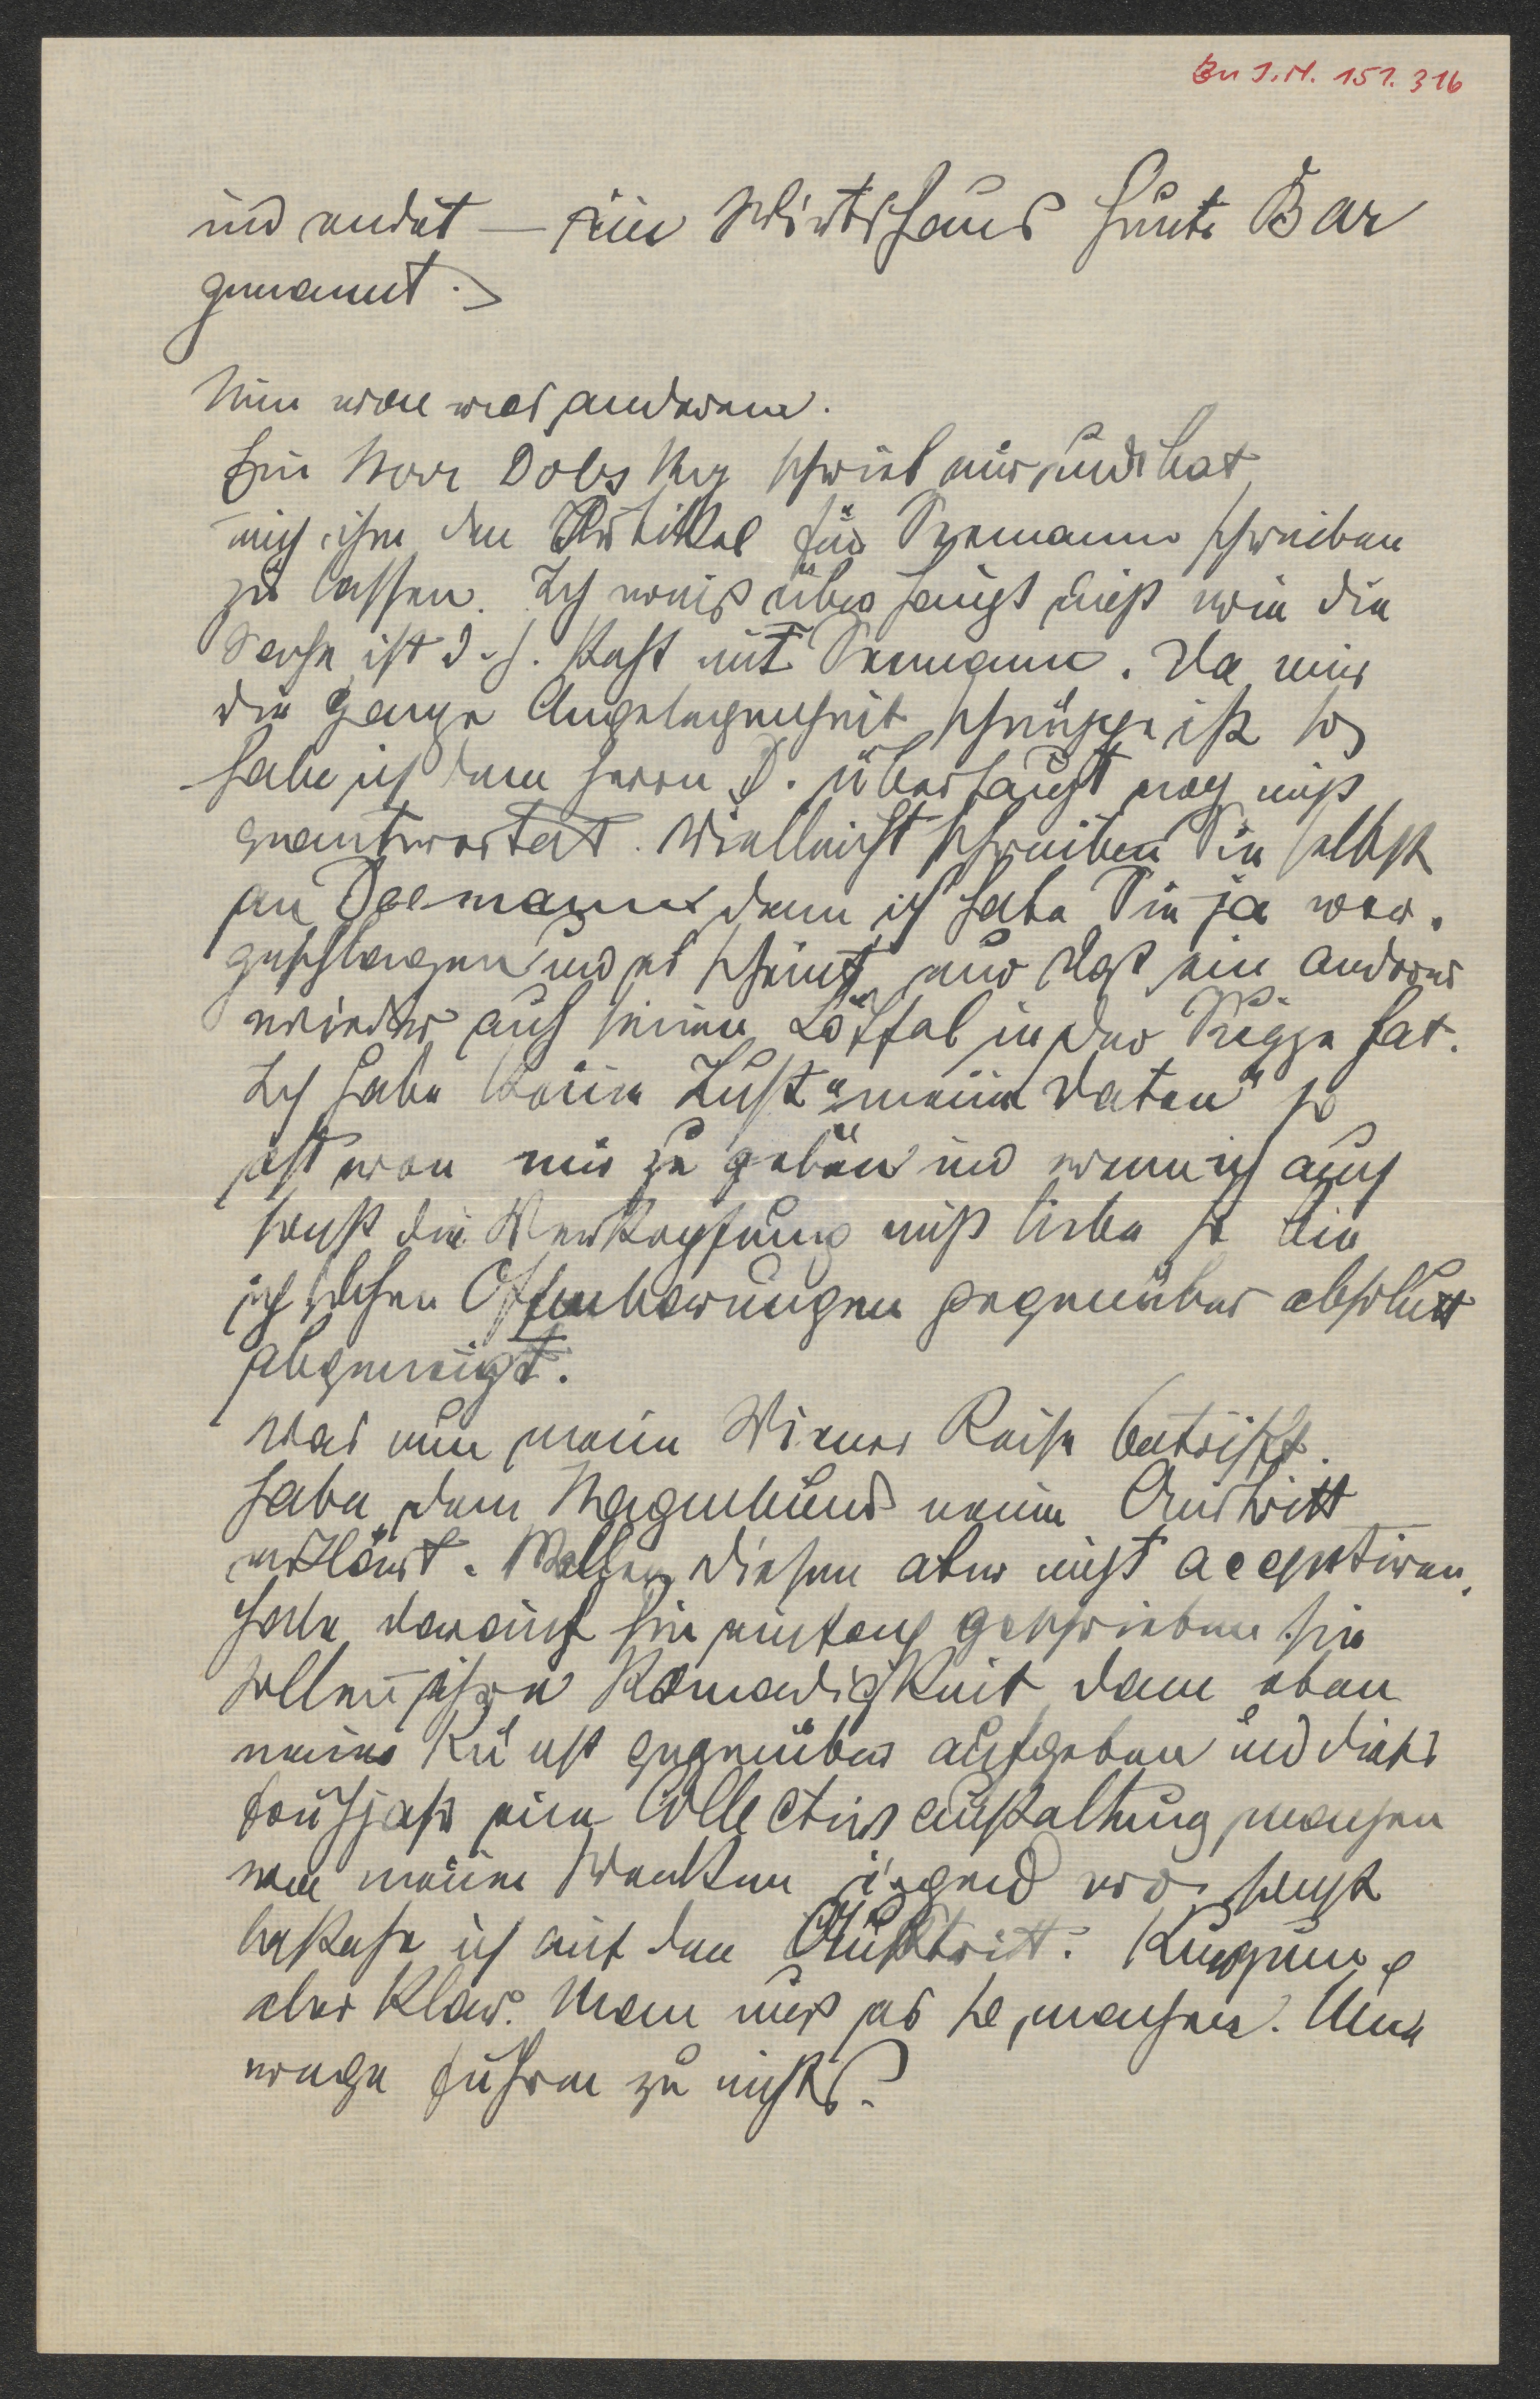 Zu I.N. 151.316
und endet — im Wirtshaus heute Bar
genannt.
Nun von was anderem.
Ein Herr Dobsky schrieb mir und bat
mich ihm den Artikel für Seemann schreiben
zu lassen. Ich weiß überhaupt nicht wie die
Sache ist d. h. steht mit Seemann. Da mir
die ganze Angelegenheit schnuppe ist so
habe ich dem Herrn D. überhaupt noch nicht
geantwortet. Vielleicht schreiben Sie selbst
an Seemann denn ich habe Sie ja vor-
geschlagen und es scheint mir daß ein anderer
wieder auch seinen Löffel in der Suppe hat.
Ich habe keine Lust "meine Daten" so
oft von mir zu geben und wenn ich auch
sonst die Verkopfung nicht liebe so bin
ich solchen Offenbarungen gegenüber absolut
abgeneigt.
Was nun meine Wiener Reise betrifft.
Habe dem Hagenbund meinen Austritt
erklärt. Wollen diesen aber nicht acceptiren,
habe darauf hin einfach geschrieben sie
sollen ihre Komödigkeit dann eben
meiner Kunst gegenüber aufgeben und dieses
Frühjahr eine Collectivausstaltung machen
von meinen Werken irgend wo sonst
bestehe ich auf den Austritt.
aber klar. Man muß es so machen. Um
wege führen zu nichts.